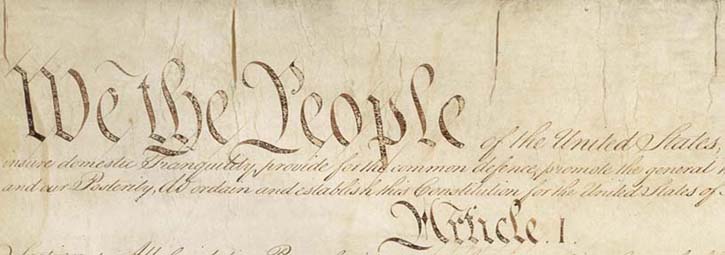 We the People of the United States,
insure domestic Tranquility, provide for the common defence, promote the general
and our Posterity, do ordain and establish this Constitution for the United States of
Article. I.